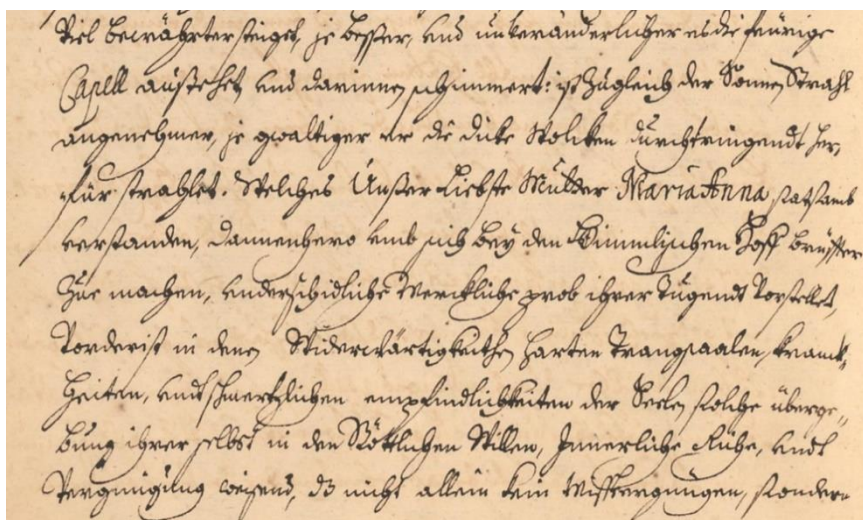 viel bewährter steiget, je besser, und unveränderlicher es die feürige
Capell außstehet, und darinnen schimmert: ist zugleich der Sonnen Strahl
angenehmer, je gwaltiger er die dicke Wolcken durchtringendt her,
für strahlet. Welches Unßer Liebste Mutter Maria Anna satsamb
verstanden, dannenhero umb sich bey den Himmlischen Hoff
Zue machen, underschidliche werckliche prob ihrer Tugendt Vorstellet,
Vorderist in denen Widerwärtigkeithen harten Trangsaalen, kranck,
heiten, undt schmertzlichen empfindlichkeiten der Seelen solche überge,,
bung ihrer selbst in den Göttlichen Willen, Innerliche Ruhe, undt
Vergnügung weisend, dz nicht allein kein Missvergnügen, sondern